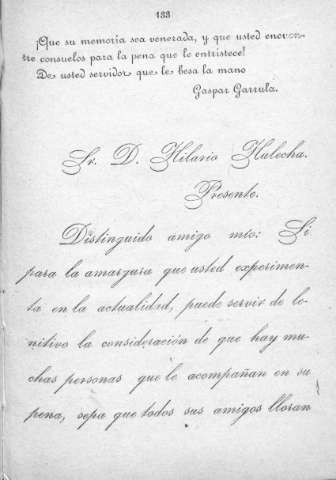 133
¡Que su memoria sea venerada, y que usted encuen-
tre consuelos para la pena que le entristece!
De usted servidor que le besa la mano
Gaspar Garrula.
Sr. D. Hilario Hulecha.
Presente.
Distinguido amigo mío: Si
para la amargura que usted experimen-
ta en la actualidad, puede servir de le-
nitivo la consideración de que hay mu-
chas personas que le acompañan en su
pena, sepa que todos sus amigos lloran